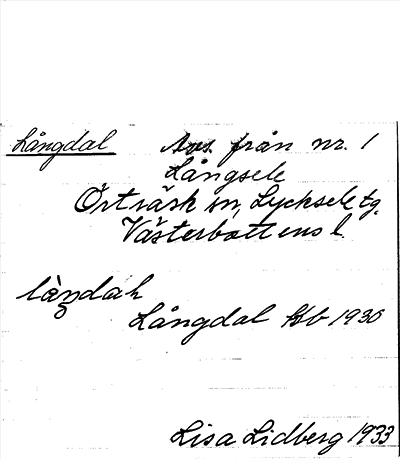 Långdal Avs. från nr. 1
Långsele
Örträsk sn, Lycksele tg.
Västerbottens l.
Långdal Hb 1930
Lisa Lidberg 1933